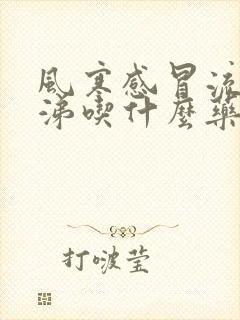 風寒感冒流
涕喫什麽藥
打啵莹